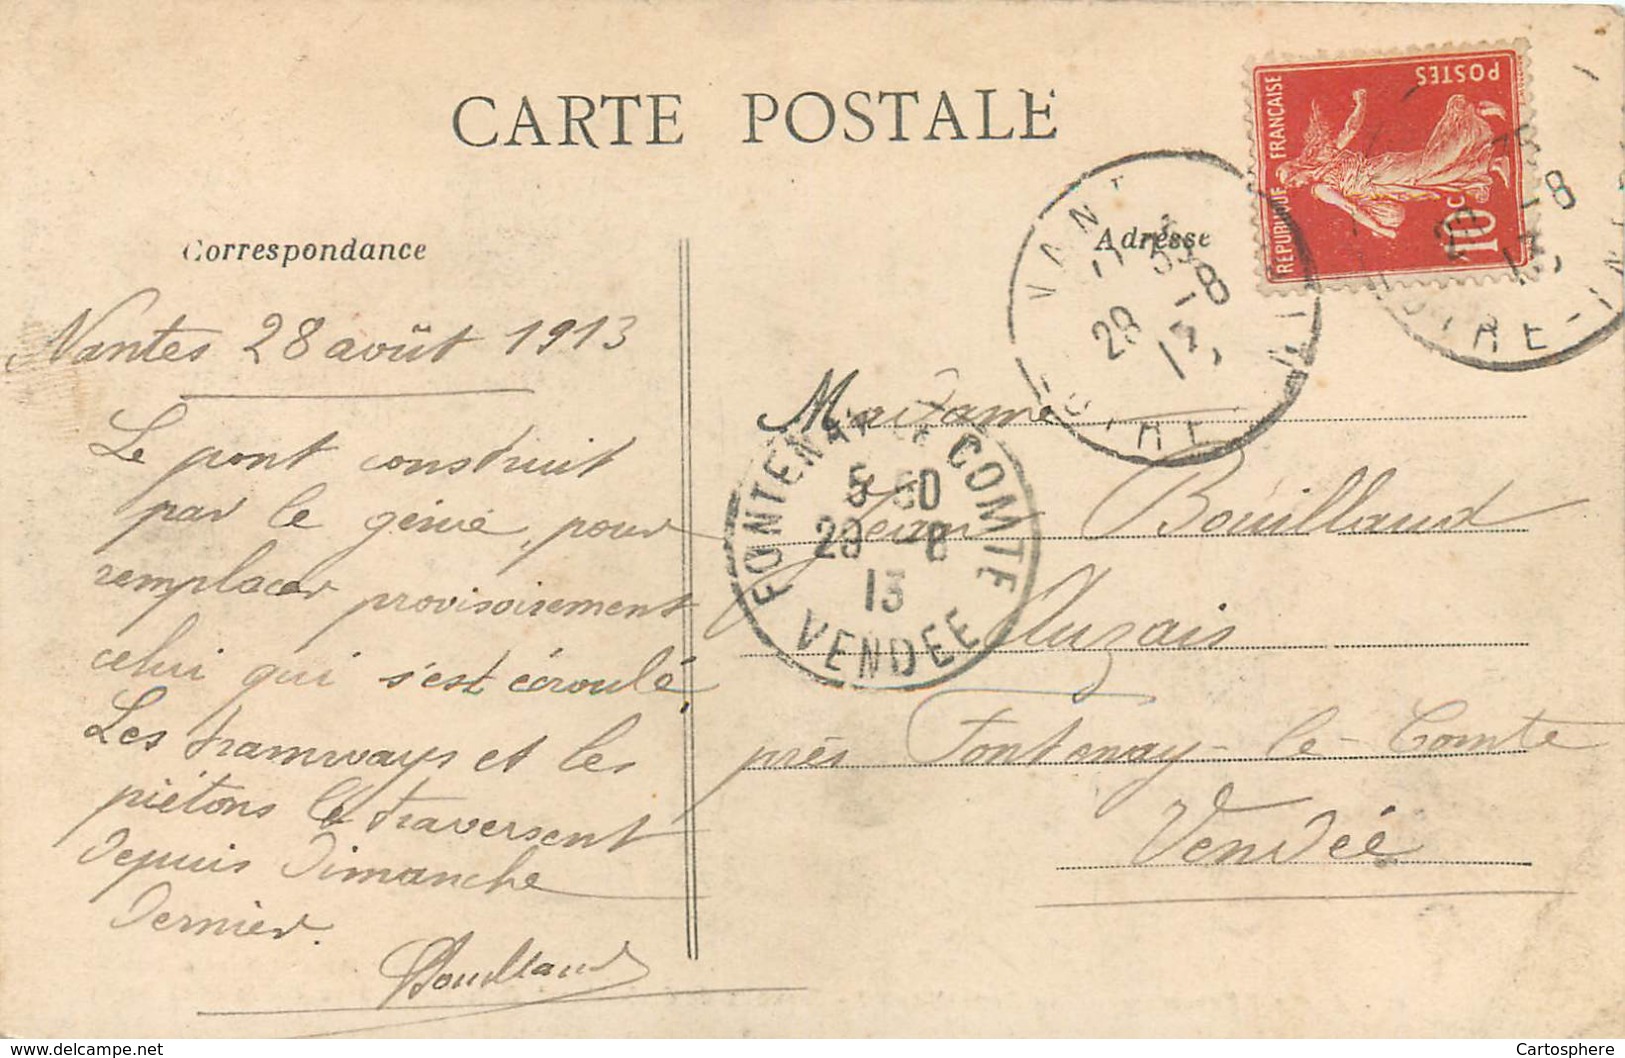 CARTE POSTALE
Correspondance
Nantes 28 août 1913
Le pont construit
par le génie, pour
remplacer provisoirement
celui qui s'est écroulé.
Les tramways et les
piétons le traversent
depuis Dimanche
Dernier.
Bouillaud
Adresse
Madame
Jean Bouillaud
Auzais
près Fontenay-le-Comte
Vendée
REPUBLIQUE FRANÇAISE
POSTES
10 c
NANT
28 -8
13
LOIRE-IN
28 -8
13
FONTENAY LE COMTE
29 -8
13
VENDEE
https://www.delcampe.net
Cartosphere